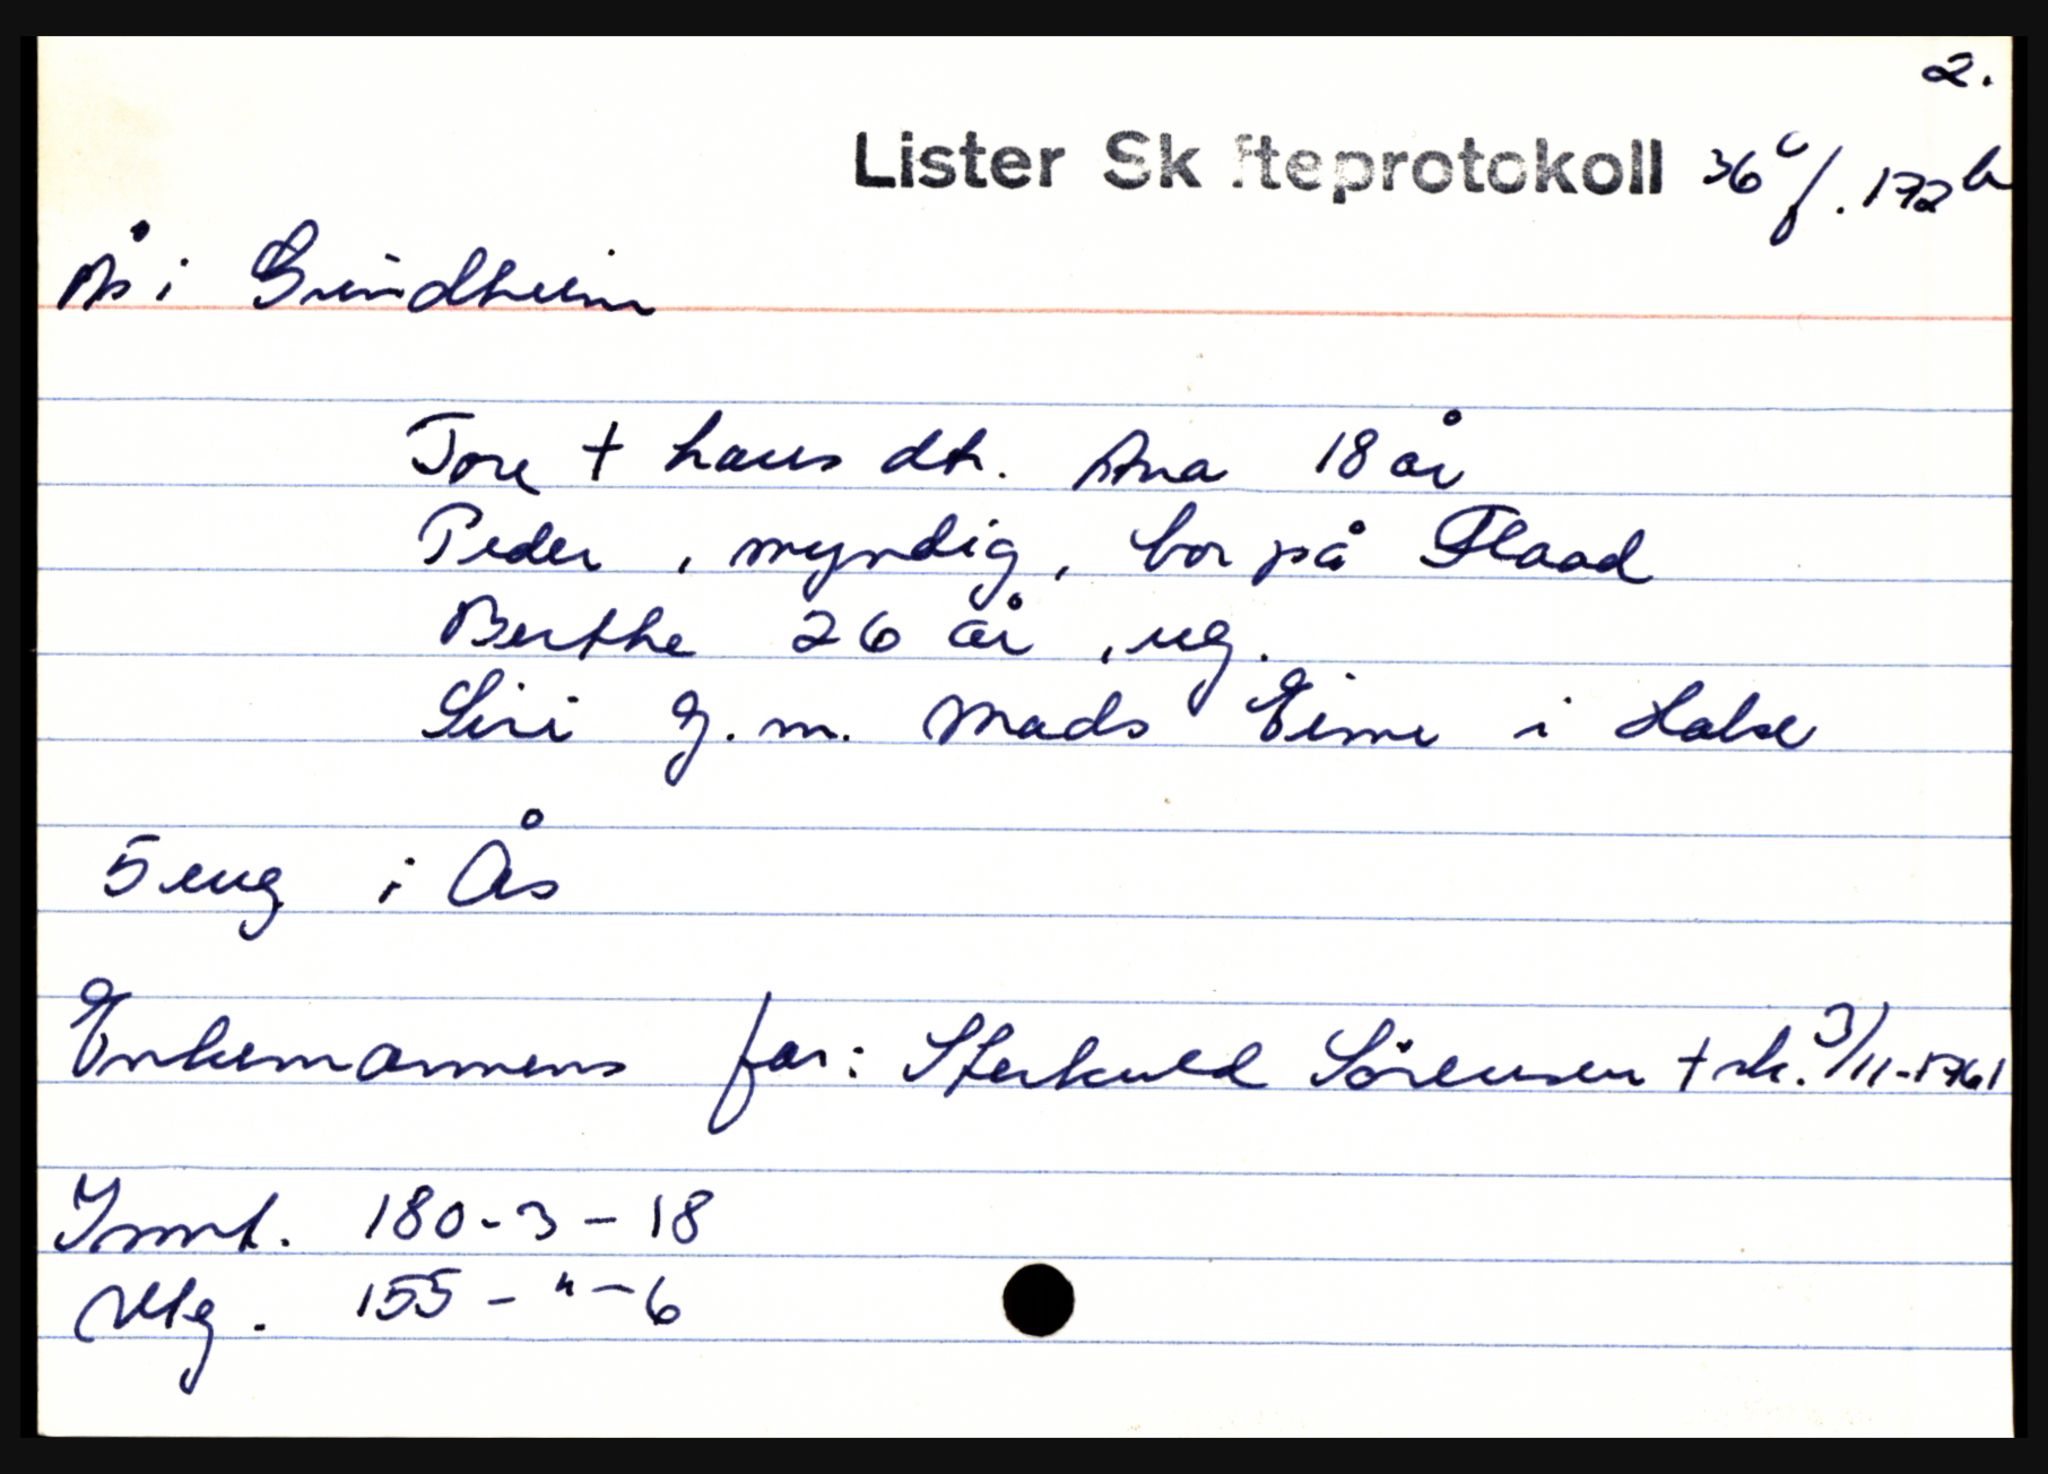 2.
Lister Sk fteprotokoll 36c f. 172b
Ås i Grindheim
Tore + hans dtr. Ana 18 år
Peder, myndig, bor på Flaad
Berthe 26 år, ug.
Siri g. m. Mads Eime i Halse
5 eng i Ås
Enkemannens far: Sterkuld Sörensen + sk. 3/11-1761
Innt. 180-3-18
Utg. 155-"-6